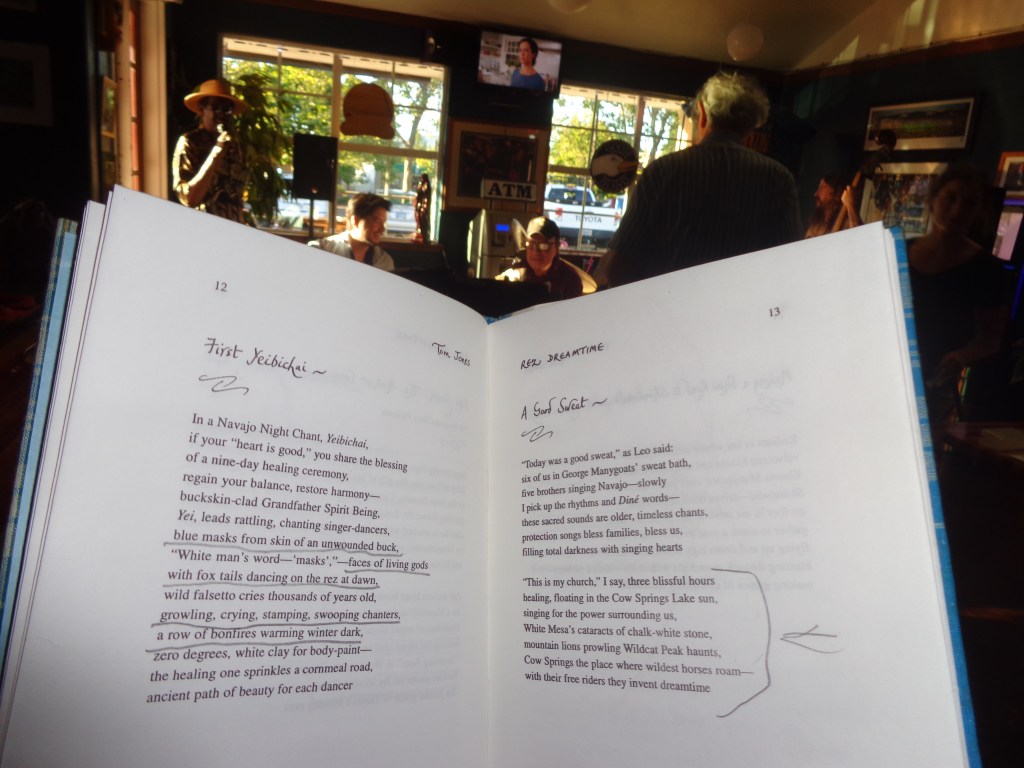 ATM
TOYOTA
12
Tom Jones
First Yeibichai ~
In a Navajo Night Chant, Yeibichai,
if your “heart is good,” you share the blessing
of a nine-day healing ceremony,
regain your balance, restore harmony—
buckskin-clad Grandfather Spirit Being,
Yei, leads rattling, chanting singer-dancers,
blue masks from skin of an unwounded buck,
“White man's word—‘masks’,”—faces of living gods
with fox tails dancing on the rez at dawn,
wild falsetto cries thousands of years old,
growling, crying, stamping, swooping chanters,
a row of bonfires warming winter dark,
zero degrees, white clay for body-paint—
the healing one sprinkles a cornmeal road,
ancient path of beauty for each dancer
13
REZ DREAMTIME
A Good Sweat ~
“Today was a good sweat,” as Leo said:
six of us in George Manygoats’ sweat bath,
five brothers singing Navajo—slowly
I pick up the rhythms and Diné words—
these sacred sounds are older, timeless chants,
protection songs bless families, bless us,
filling total darkness with singing hearts
“This is my church,” I say, three blissful hours
healing, floating in the Cow Springs Lake sun,
singing for the power surrounding us,
White Mesa’s cataracts of chalk-white stone,
mountain lions prowling Wildcat Peak haunts,
Cow Springs the place where wildest horses roam—
with their free riders they invent dreamtime